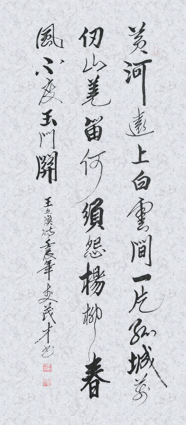 黄河遠上白雲間一片孤城萬
仞山羌笛何須怨楊柳春
風不度玉門關
王之渙诗壬辰年史茂才书